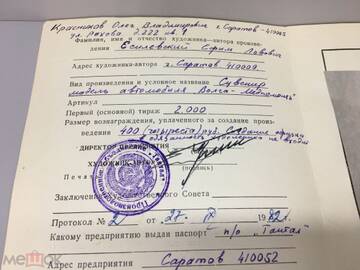 Красников Олег Владимирович г. Саратов - 410052
ул. Рахова д. 222 кв. 9
Фамилия, имя и отчество художника-автора произве-
дения Есилевский Ефим Львович
Адрес художника-автора г. Саратов 410009
Вид произведения и условное название Сувенир
модель автомобиля Волга-Медпомощь
Артикул
Первый (основной) тираж 2.000
Размер вознаграждения, уплаченного за создание произ-
ведения 400 (четыреста) руб. Создание
обязанность не входит
ДИРЕКТОР ПРЕДПРИЯТИЯ
ХУДОЖНИК-АВТОР
(подпись)
Печать
Заключение Художественного Совета
Протокол № 2 от 27. IX 1982 г.
Какому предприятию выдан паспорт п/о "Тантал"
Саратов 410052
Адрес предприятия
Meshok.net